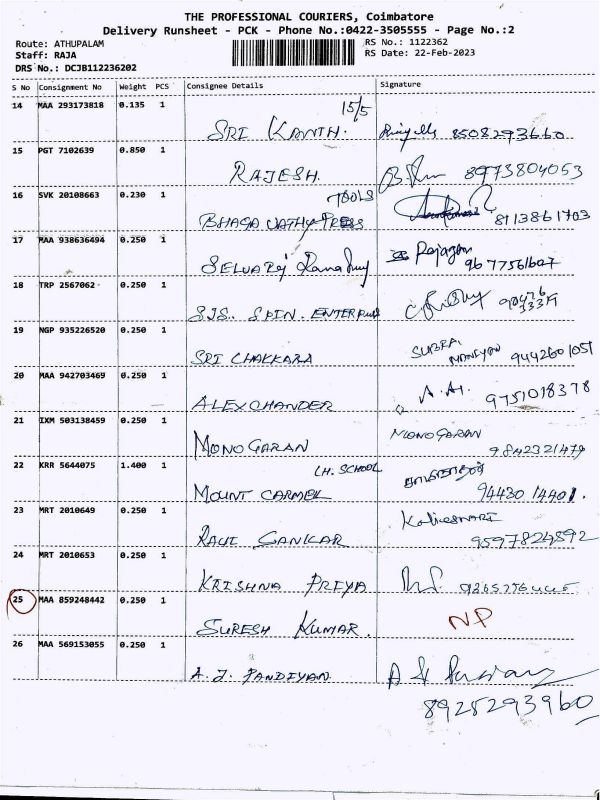 THE PROFESSIONAL COURIERS, Coimbatore
Delivery Runsheet - PCK - Phone No.:0422-3505555 - Page No.:2
Route: ATHUPALAM RS No.: 1122362
Staff: RAJA RS Date: 22-Feb-2023
DRS No.: DCJB112236202
S No Consignment No Weight PCS Consignee Details Signature
14 MAA 293173818 0.135 1 15/5
SRI KANTH. 8508293660
15 PGT 7102639 0.850 1
RAJESH. 8973804053
16 SVK 20108663 0.230 1 TOOLS
BHAGAVATHY PRESS 8113861703
17 MAA 938636494 0.250 1
SELVARAJ Rajagan
9677561607
18 TRP 2567062 0.250 1
SJS. SPIN. ENTERPRISE
19 NGP 935226520 0.250 1
SRI CHAKKARA SUBRA MANIYAN 9442601051
20 MAA 942703469 0.250 1
ALEXCHANDER 9751018378
21 IXM 503138459 0.250 1 MONOGARAN
MONOGARAN 9842321479
22 KRR 5644075 1.400 1 LH. SCHOOL
MOUNT CARMEL 94430 14401.
23 MRT 2010649 0.250 1
RAVI SANKAR 9597824592
24 MRT 2010653 0.250 1
KRISHNA PRIYA
25 MAA 859248442 0.250 1 NP
SURESH KUMAR.
26 MAA 569153055 0.250 1
A. J. PANDIYAN
8925293960